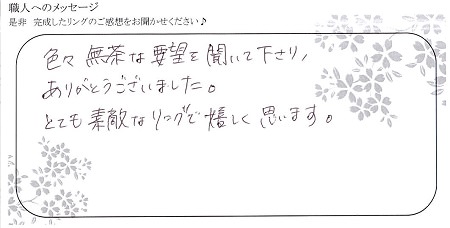 職人へのメッセージ
是非 完成したリングのご感想をお聞かせください♪
色々無茶な要望を聞いて下さり、
ありがとうございました。
とても素敵なリングで嬉しく思います。